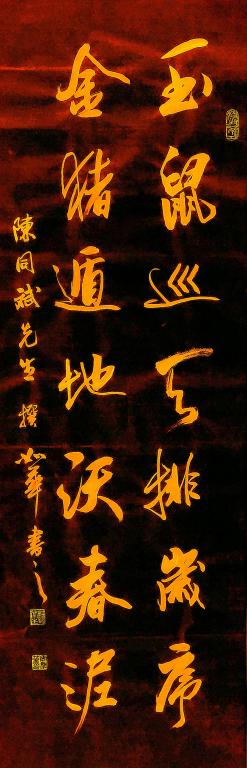 玉鼠巡天排歲序
金猪遁地沃春泥
陳同斌先生撰 如華書之